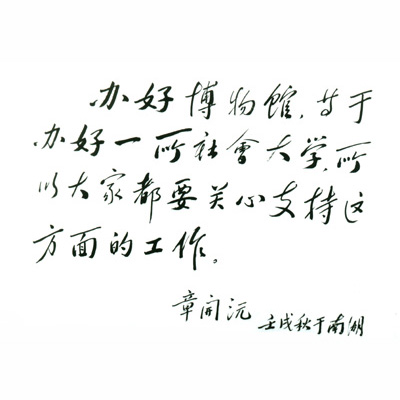 办好博物馆，等于
办好一所社會大学，所
以大家都要关心支持这
方面的工作。
章开沅 壬戌秋于南湖